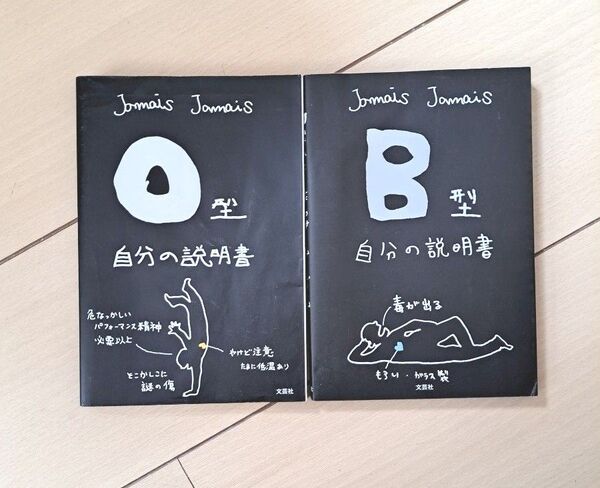 Jamais Jamais
O型
自分の説明書
危なっかしい
パフォーマンス精神
必要以上
やけど注意
たまに低温あり
そこかしこに
謎の傷
文芸社
Jamais Jamais
B型
自分の説明書
毒が出る
もろい・ガラス製
文芸社